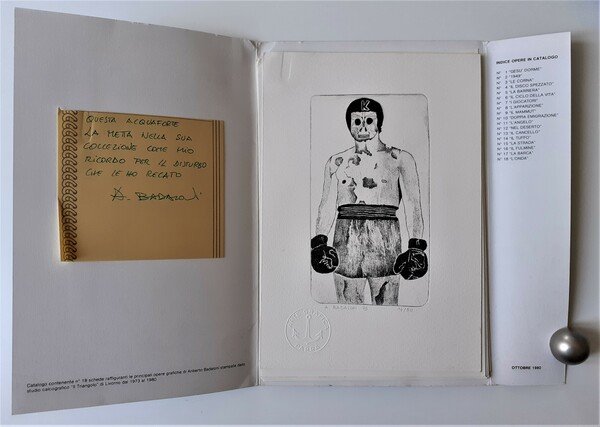 QUESTA ACQUAFORTE
LA METTA NELLA SUA
COLLEZIONE COME MIO
RICORDO PER IL DISTURBO
CHE LE HO RECATO
A. BADALONI
Catalogo contenente n° 18 schede raffiguranti le principali opere grafiche di Amberto Badaloni stampate dallo
studio calcografico "Il Triangolo" di Livorno dal 1973 al 1980
K
A. BADALONI
INDICE OPERE IN CATALOGO
N° 1 "GESU' DORME"
N° 2 "1949"
N° 3 "LE CORNA"
N° 4 "IL DISCO SPEZZATO"
N° 5 "LA BARRIERA"
N° 6 "IL CICLO DELLA VITA"
N° 7 "I GIOCATORI"
N° 8 "L'APPARIZIONE"
N° 9 "IL MAMMUT"
N° 10 "DOPPIA EMIGRAZIONE"
N° 11 "L'ANGELO"
N° 12 "NEL DESERTO"
N° 13 "IL CANCELLO"
N° 14 "IL TUFFO"
N° 15 "LA STRADA"
N° 16 "IL FULMINE"
N° 17 "LA BARCA"
N° 18 "L'ONDA"
OTTOBRE 1980